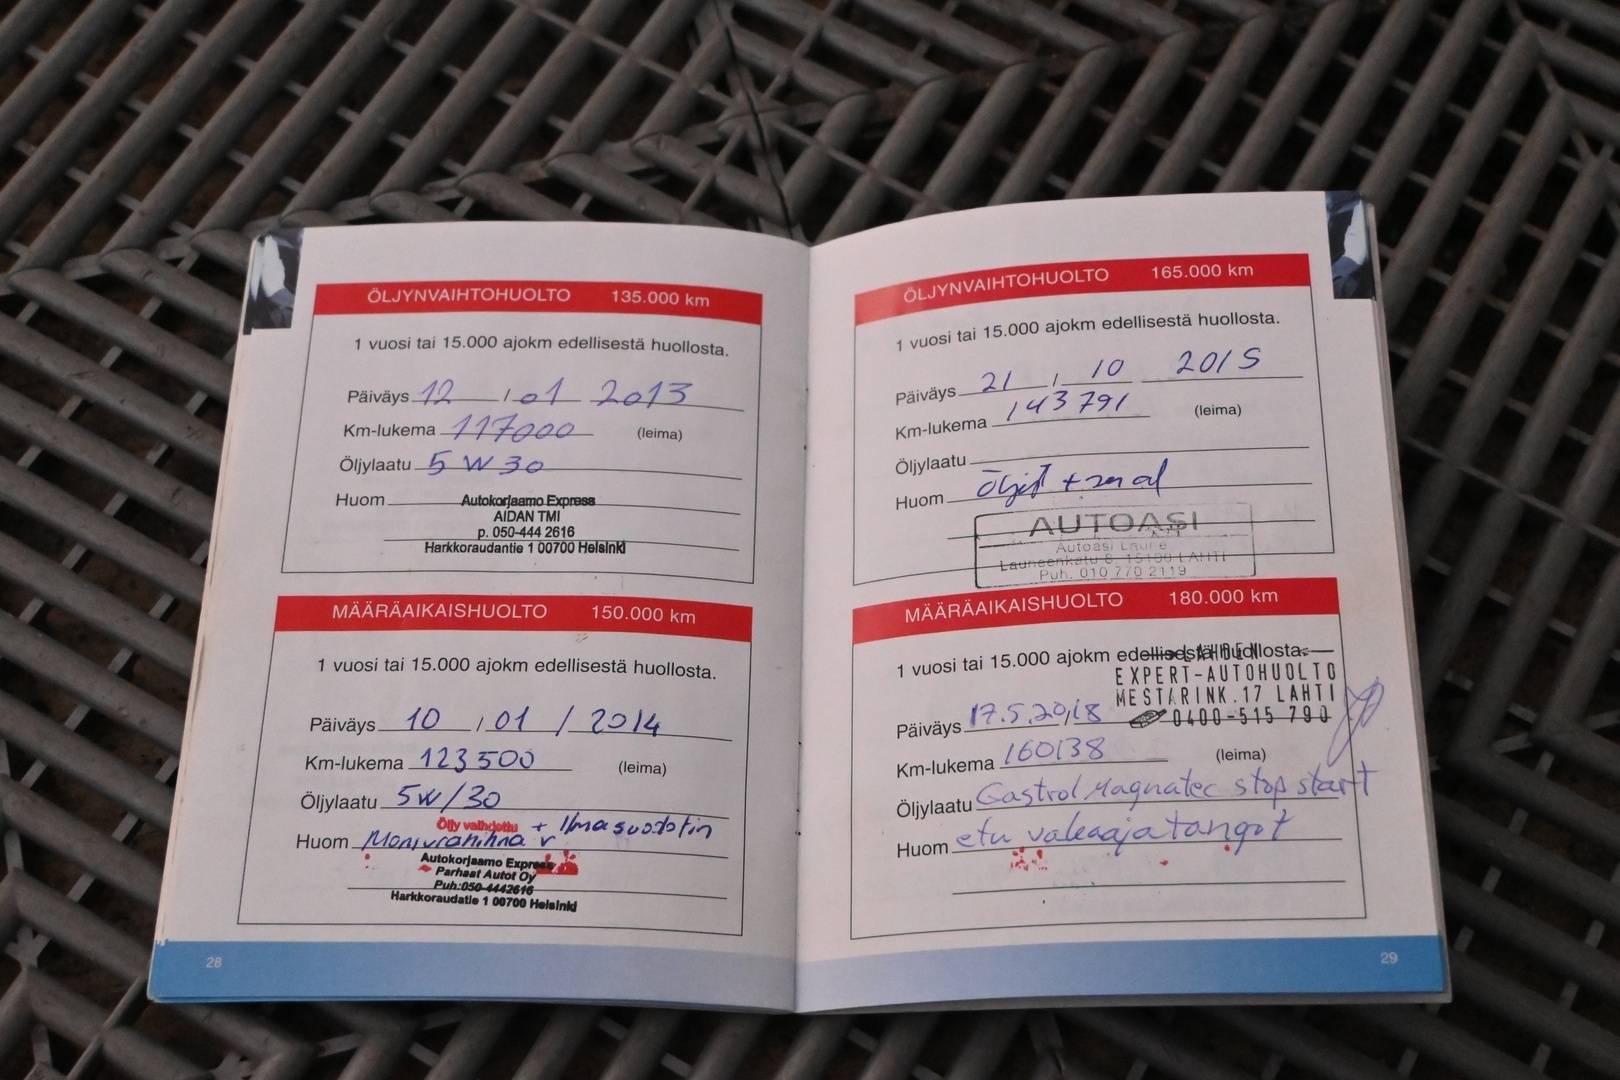 ÖLJYNVAIHTOHUOLTO 135.000 km
1 vuosi tai 15.000 ajokm edellisestä huollosta.
Päiväys 12 / 01 2013
Km-lukema 117000 (leima)
Öljylaatu 5 W 30
Huom
Autokorjaamo Express
AIDAN TMI
p. 050-444 2616
Harkkoraudantie 1 00700 Helsinki
MÄÄRÄAIKAISHUOLTO 150.000 km
1 vuosi tai 15.000 ajokm edellisestä huollosta.
Päiväys 10 / 01 / 2014
Km-lukema 123500 (leima)
Öljylaatu 5W/30
Öljy vaihdettu + Ilmasuodatin
Huom Moniurahihna
Autokorjaamo Express
Parhaat Autot Oy
Puh:050-4442616
Harkkoraudatie 1 00700 Helsinki
28
ÖLJYNVAIHTOHUOLTO 165.000 km
1 vuosi tai 15.000 ajokm edellisestä huollosta.
Päiväys 21 / 10 2015
Km-lukema 143791 (leima)
Öljylaatu
Huom Öljyt +
AUTOASI
Autoasi Laune
Launeenkatu 8, 15100 LAHTI
Puh. 010 770 2119
MÄÄRÄAIKAISHUOLTO 180.000 km
1 vuosi tai 15.000 ajokm edellisestä huollosta.
LAHDEN
EXPERT-AUTOHUOLTO
MESTARINK.17 LAHTI
0400-515 790
Päiväys 17.5.2018
Km-lukema 160138 (leima)
Öljylaatu Castrol Magnatec stop start
Huom etu vakaajatangot
29